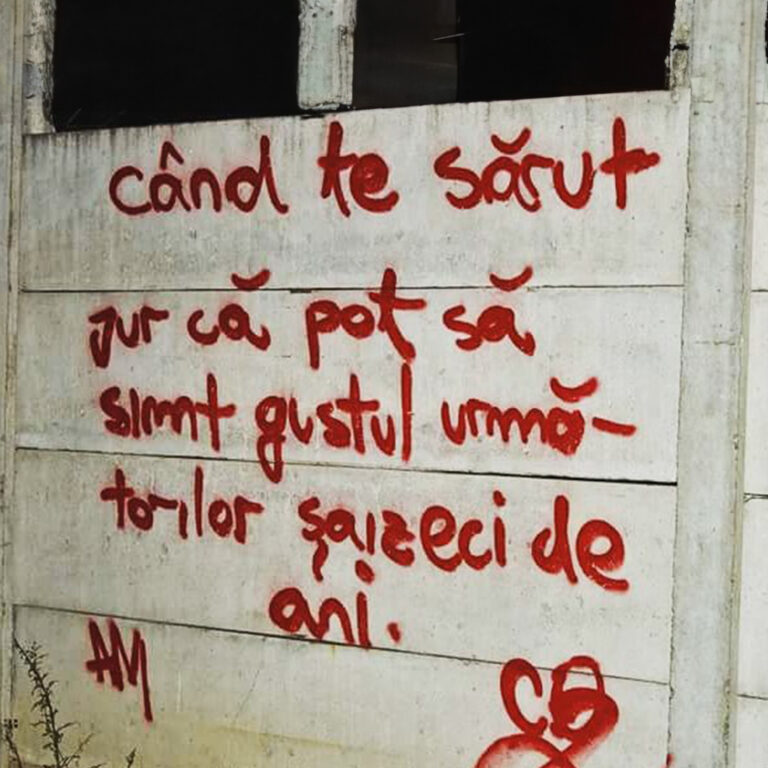 când te sărut
jur că pot să
simt gustul urmă-
torilor șaizeci de
ani.
AM